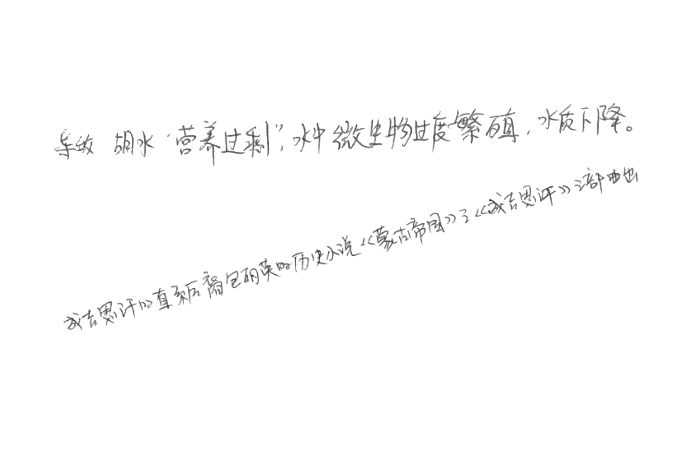 导致湖水“营养过剩”，水中微生物过度繁殖，水质下降。
成吉思汗的直系后裔包丽英的历史小说《蒙古帝国》之《成吉思汗》三部曲出